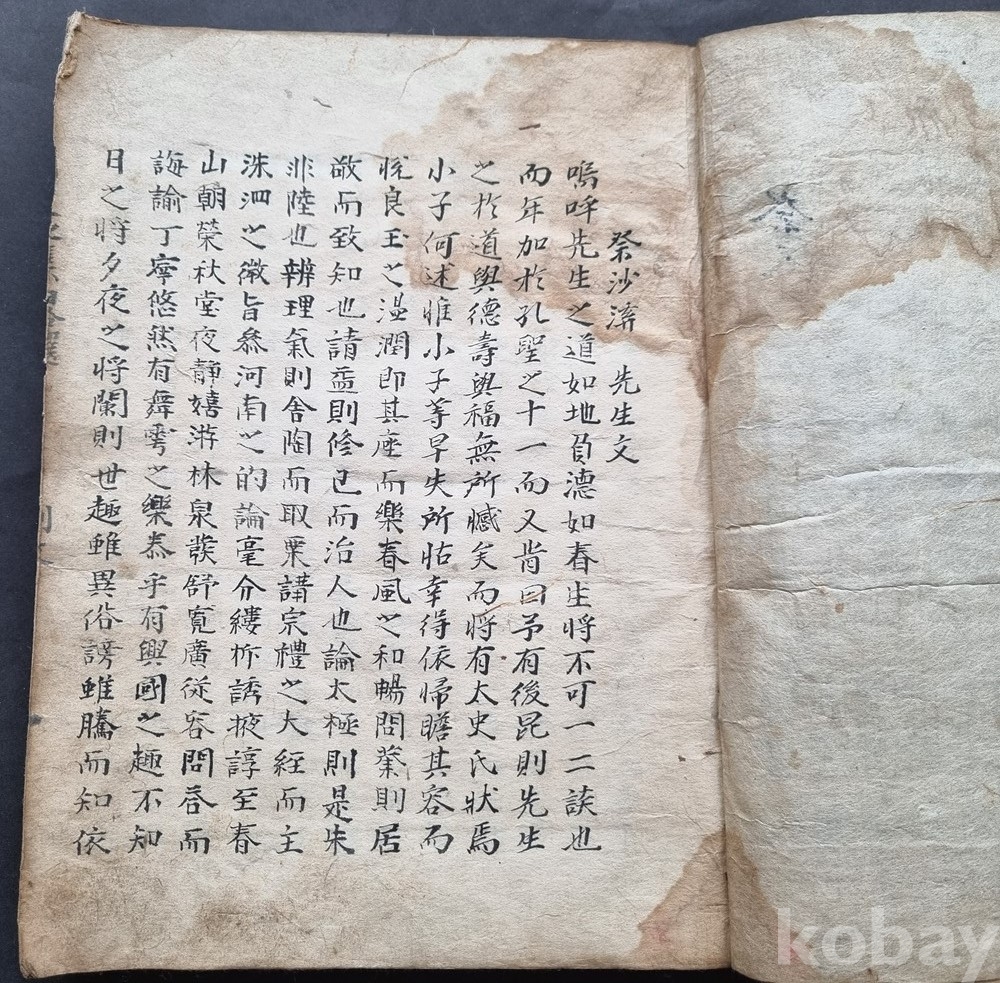 祭沙㳽 先生文
嗚呼先生之道如地負德如春生將不可一二談也
而年加於孔聖之十一而又嘗曰予有後昆則先生
之於道與德壽與福無所憾矣而將有太史氏狀焉
小子何述惟小子等早失所怙幸得依歸瞻其容而
悅良玉之溫潤卽其座而樂春風之和暢問業則居
敬而致知也請益則修己而治人也論太極則是朱
非陸也辨理氣則舍陶而取栗講宗禮之大經而主
洙泗之微旨叅河南之的論毫分縷柝誘掖諄至春
山朝榮秋堂夜靜嬉游林泉發舒寬廣從容問答而
誨諭丁寧悠然有舞雩之樂泰乎有輿國之趣不知
日之將夕夜之將闌則世趣雖異俗謗雖騰而知依
kobay